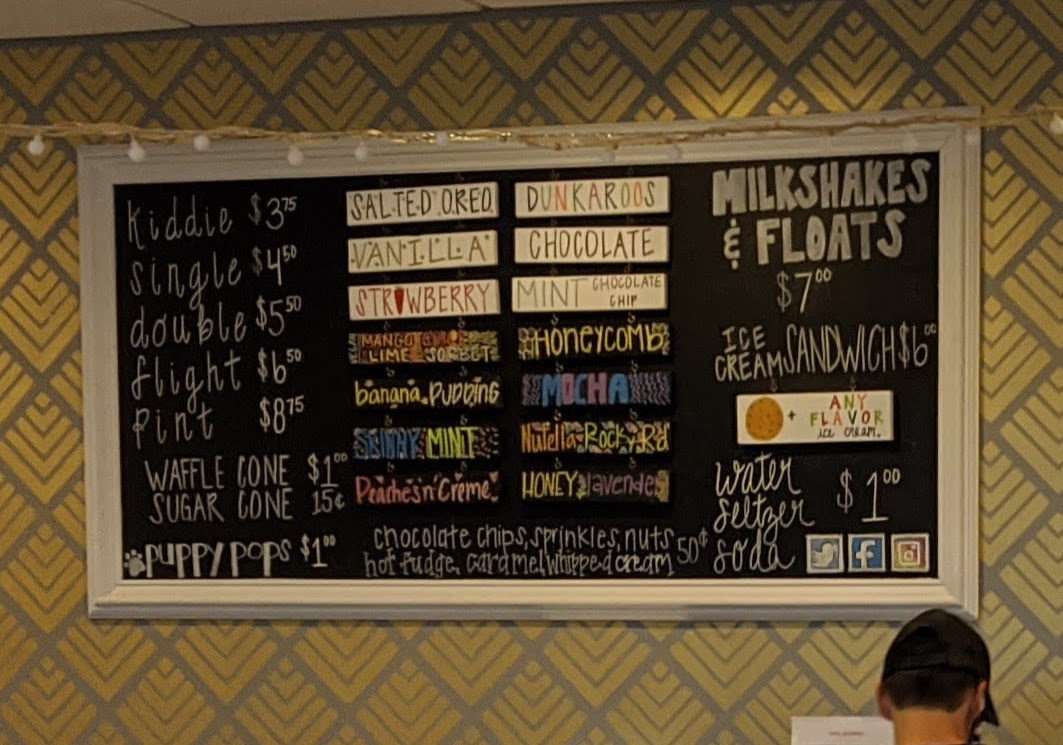 kiddie $3 75
single $4 50
double $5 50
flight $6 50
pint $8 75
WAFFLE CONE $1 00
SUGAR CONE 15¢
PUPPY POPS $1 00
SALTED OREO
VANILLA
STRWBERRY
MANGO
LIME SORBET
banana PUDDING
SKINNY MINT
Peaches 'n' Creme
DUNKAROOS
CHOCOLATE
MINT CHOCOLATE CHIP
HONEYCOMB
MOCHA
Nutella Rocky Rd
HONEY lavender
chocolate chips, sprinkles, nuts 50¢
hot fudge, caramel, whipped cream
MILKSHAKES
& FLOATS
$7 00
ICE CREAM SANDWICH $6 00
+ ANY
FLAVOR
ice cream.
water
seltzer $1 00
soda